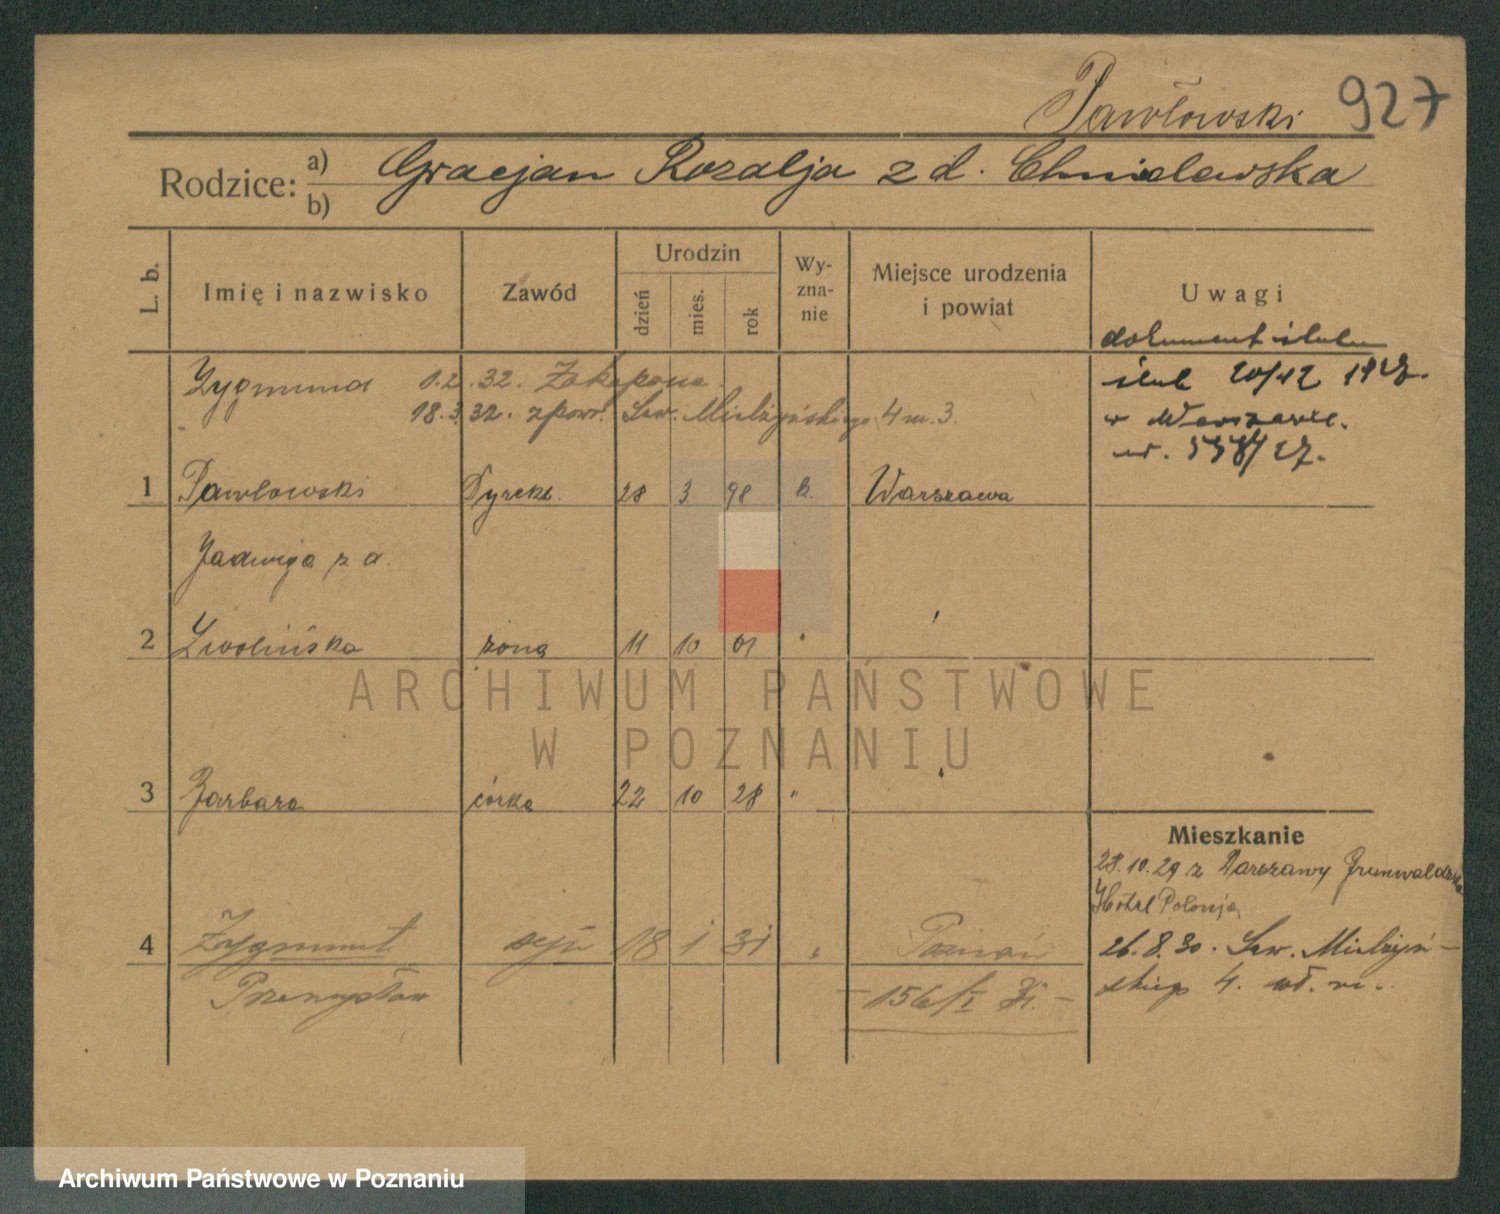 Pawłowski 927
Rodzice: a) b) Gracjan Rozalja z d. Chmielewska
L. b.
Imię i nazwisko
Zawód
Urodzin
dzień
mies.
rok
Wy-
zna-
nie
Miejsce urodzenia
i powiat
Uwagi
dokument ślubu
ślub 20/12 1927.
w Warszawie.
nr. 558/27.
Zygmund 1.2.32. Zakopane.
18.3.32. zpowr. Sew. Mielżyńskiego 4 m.3.
1 Pawłowski Dyrekt. 28 3 98 k. Warszawa
Jadwiga z d.
2 Zwolińska żona 11 10 01 "
3 Barbara córka 22 10 28 "
Mieszkanie
28.10.29 z Warszawy Grunwaldzka
Hotel Polonja
4 Zygmunt syn 18 1 31 " Poznań
Przemysław
156/I
26.8.30. Sew. Mielżyń-
skiego 4.
ARCHIWUM PAŃSTWOWE
W POZNANIU
Archiwum Państwowe w Poznaniu